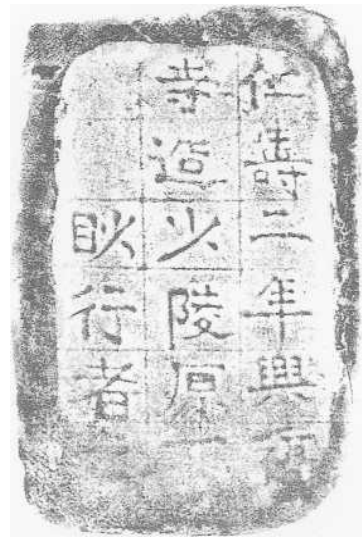 仁壽二年興
寺造少陵原
眇行者